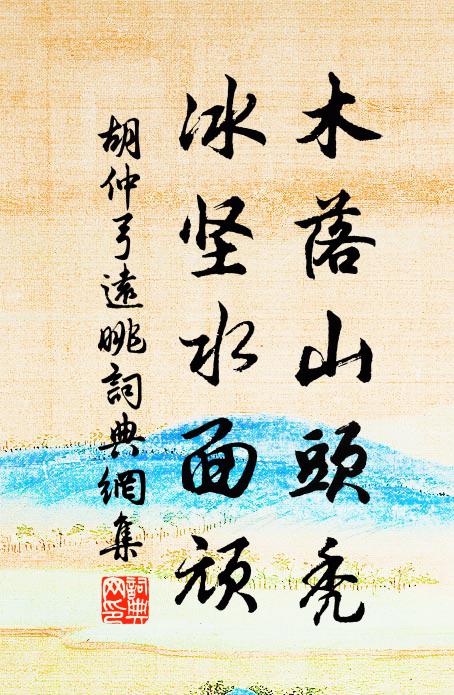 木落山頭禿
冰坚水面顽
胡仲弓遠眺詞典網集
詞典網印